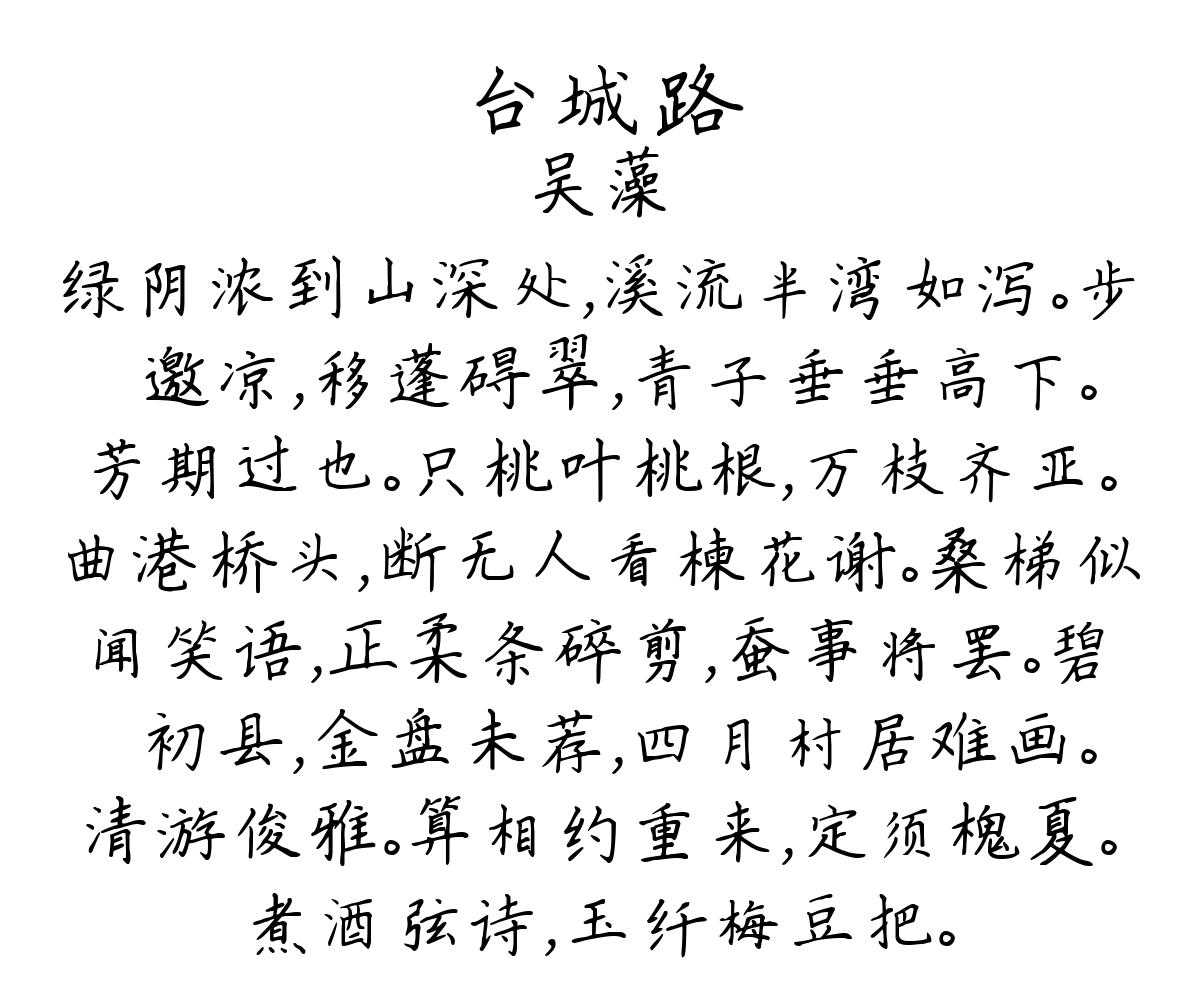 台城路
吴藻
绿阴浓到山深处,溪流半湾如泻。步
邀凉,移蓬碍翠,青子垂垂高下。
芳期过也。只桃叶桃根,万枝齐亚。
曲港桥头,断无人看楝花谢。桑梯似
闻笑语,正柔条碎剪,蚕事将罢。碧
初县,金盘未荐,四月村居难画。
清游俊雅。算相约重来,定须槐夏。
煮酒弦诗,玉纤梅豆把。